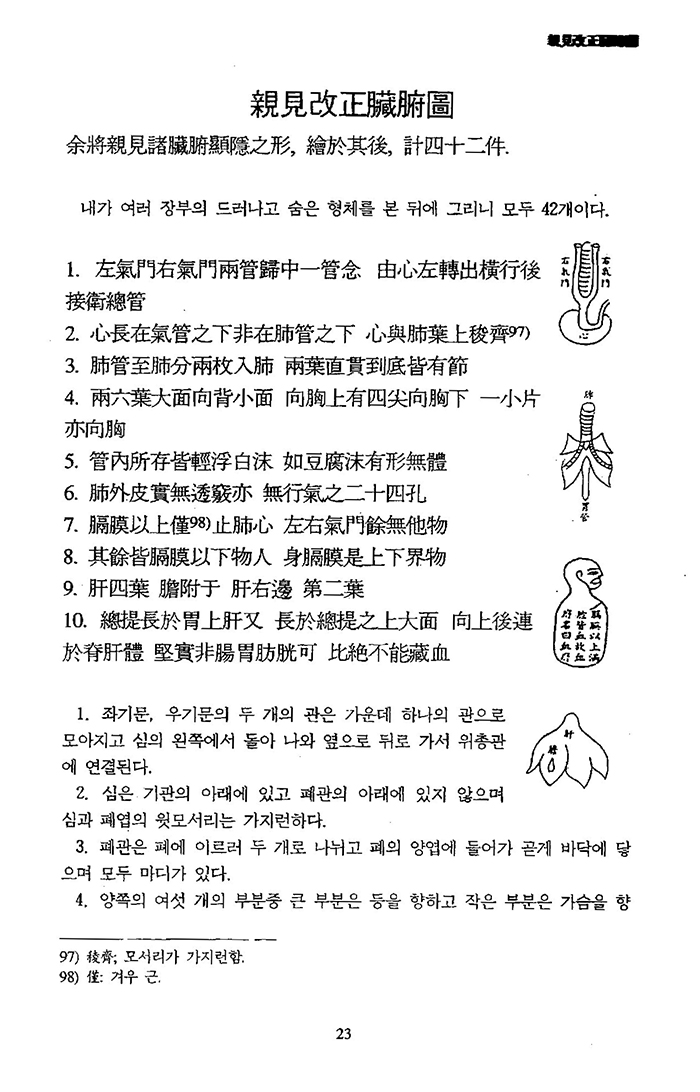 親見改正
親見改正臟腑圖
余將親見諸臟腑顯隱之形, 繪於其後, 計四十二件.
내가 여러 장부의 드러나고 숨은 형체를 본 뒤에 그리니 모두 42개이다.
1. 左氣門右氣門兩管歸中一管念 由心左轉出橫行後
接衛總管
2. 心長在氣管之下非在肺管之下 心與肺葉上稜齊97)
3. 肺管至肺分兩枚入肺 兩葉直貫到底皆有節
4. 兩六葉大面向背小面 向胸上有四尖向胸下 一小片
亦向胸
5. 管內所存皆輕浮白沫 如豆腐沫有形無體
6. 肺外皮實無透竅亦 無行氣之二十四孔
7. 膈膜以上僅98)止肺心 左右氣門餘無他物
8. 其餘皆膈膜以下物人 身膈膜是上下界物
9. 肝四葉 膽附于 肝右邊 第二葉
10. 總提長於胃上肝又 長於總提之上大面 向上後連
於脊肝體 堅實非腸胃肪胱可 比絶不能藏血
右氣門
左氣門
心
肺
膈膜以上滿
腔皆血故血
府名曰血府
肝
膽
1. 좌기문, 우기문의 두 개의 관은 가운데 하나의 관으로
모아지고 심의 왼쪽에서 돌아 나와 옆으로 뒤로 가서 위총관
에 연결된다.
2. 심은 기관의 아래에 있고 폐관의 아래에 있지 않으며
심과 폐엽의 윗모서리는 가지런하다.
3. 폐관은 폐에 이르러 두 개로 나뉘고 폐의 양엽에 들어가 곧게 바닥에 닿
으며 모두 마디가 있다.
4. 양쪽의 여섯 개의 부분중 큰 부분은 등을 향하고 작은 부분은 가슴을 향
97) 稜齊; 모서리가 가지런함.
98) 僅: 겨우 근.
23